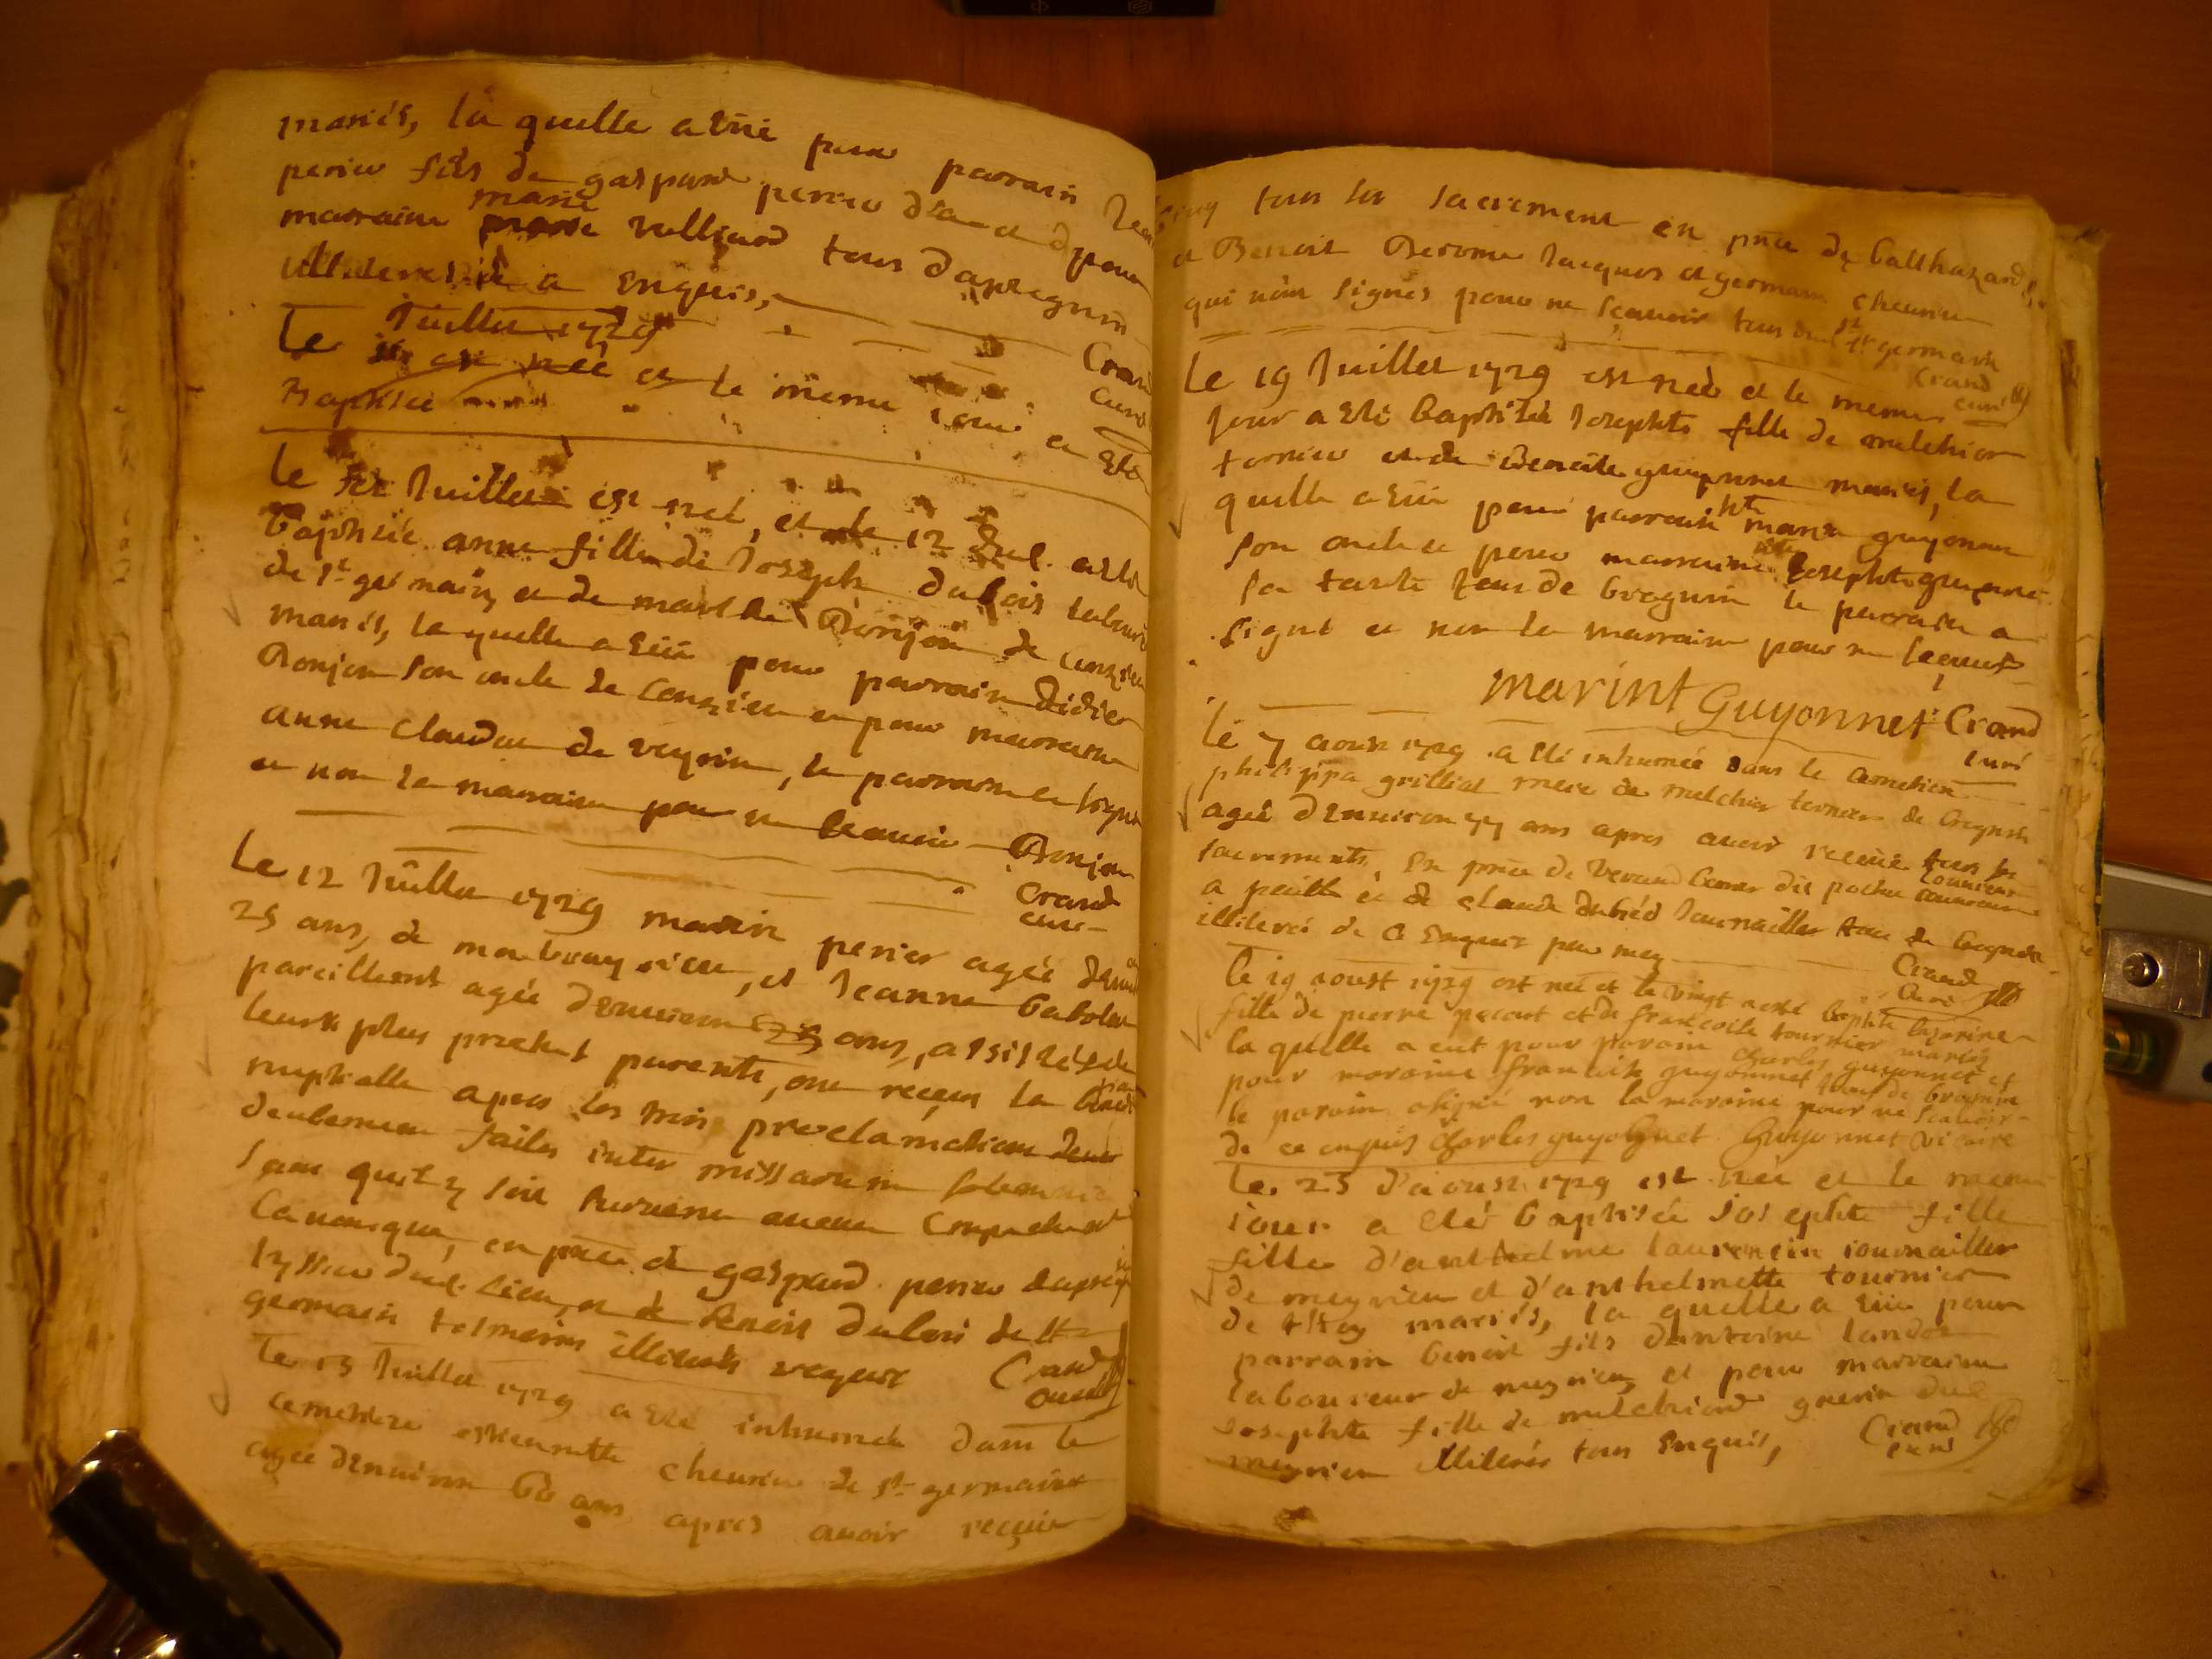 mariés, la quelle a eüe pour parrain
perier fils de gaspard perier d'une et pour
marraine marie vulliand tous d'apregnin
illiteres de ce enquis,
Crand
curé
Juillet 1729
Le est née et le meme jour a eté
Baptisée
Le Juillet est née, et le 12 dud. a eté
baptisée anne fille de Joseph dubois laboure
de st germain, et de marthe Bonjon de conzieu
mariés, la quelle a eüe pour parrain didier
Bonjon son oncle de Conzieu et pour marraine
anne claudine de veyrin, le parrain a signé
et non la marraine pour ne scauoir Bonjon
Crand
curé
Le 12 Juillet 1729 marin perier agée d'enui
25 ans, de et Jeanne
pareillemt agée d'enuiron ans, assistés de
leurs plus proches parents, ont reçeu la
nuptialle apres les trois proclamations
deubement faites inter missarum solemnia
sans qu'il y soit suruenu aucun empechemt
Canonique, en pnce de gaspard perier
dud. lieu, et de Benoit dubois de st
germain temoins illiterés requis Crand
curé
Le 13 Juillet 1729 a eté inhumée dans le
cemetiere estiennette cheurier de st germain
agée d'enuiron 60 ans apres auoir reçeüe
tous les sacrement en pnce de balthazard
et Benoit Berome Jacques et germain cheurier
qui n'ont signés pour ne scauoir tous de st germain
Crand
curé
Le 19 Juillet 1729 est née et le meme
jour a eté baptisée Josephte fille de melchior
tornier et de Benoite guyonnet mariés, la
quelle a eüe pour parrain hte marin guyonnet
son oncle et pour marraine Josephte guyonnet
sa tante tous de bregnin le parrain a
signé et non la marraine pour ne scauoir
marint Guyonnet Crand
curé
Le 7 aoust 1729 a eté inhumée dans le cemetiere
philippa grilliet mere de melchior tornier de bregnin
agée d'enuiron 77 ans apres auoir receüe tous les
sacrements, en pnce de dit couureur
a paille et de claude dubied Journallier tous de bregnin
illiterés de ce enquis par moy
Crand
curé
Le 19 aoust 1729 est née et le vingt a esté baptisée
fille de pierre pecout et de francoise tournier mariés
la quelle a eut pour parain charles guyonnet et
pour maraine francoise guyonnet tous de bregnin
le parain a signé non la maraine pour ne scauoir
de ce enquis Charles guyonnet Guyonnet vicaire
Le 23 d'aoust 1729 est née et le meme
jour a eté baptisée Josephte fille
fille d'anthelme laurencin journallier
de meyrieu et d'anthelmette tournier
de mariés, la quelle a eüe pour
parrain benoit fils d'antoine landoz
laboureur de meyrieu, et pour marraine
Josephte fille de melchiord guerin dud
meyrieu illiterés tous enquis, Crand
curé